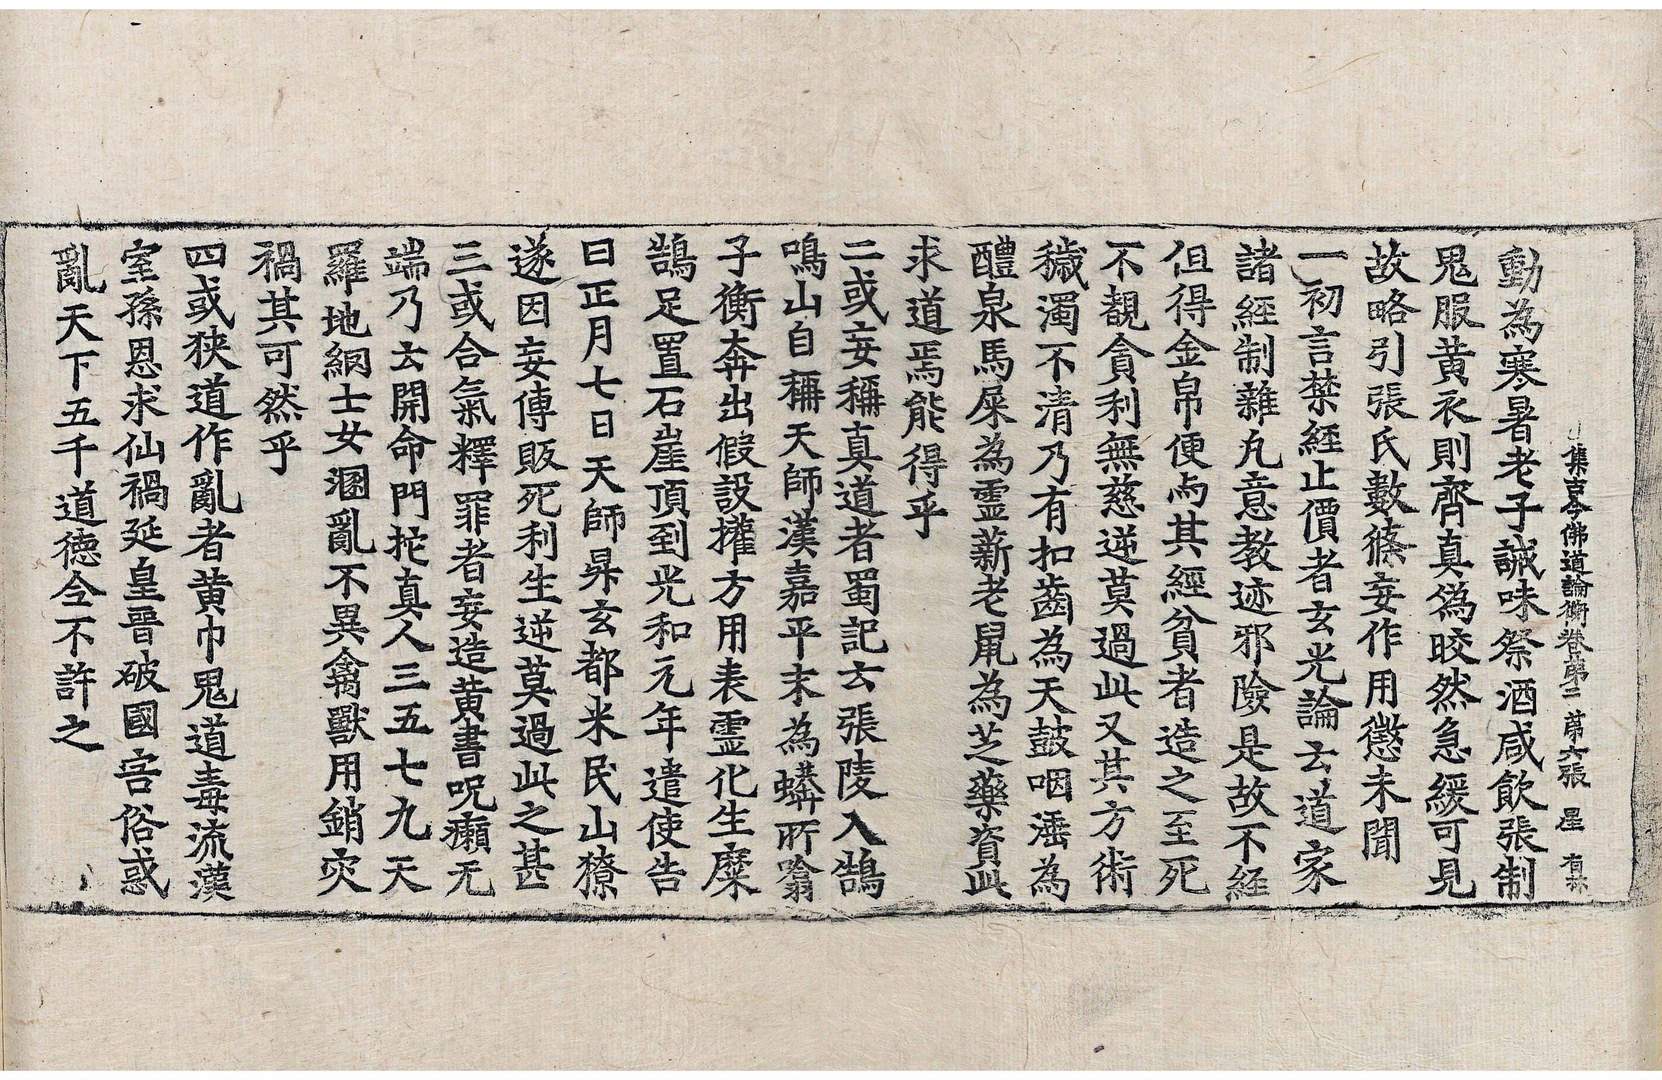 集古今佛道論衡卷第二 第六張 星
動為寒暑老子誡味祭酒咸飲張制
鬼服黃衣則齊真偽晈然急緩可見
故略引張氏數條妄作用懲未聞
一初言禁經止價者玄光論云道家
諸經制雜凡意教迹邪險是故不経
但得金帛便与其經貧者造之至死
不覩貪利無慈逆莫過此又其方術
穢濁不清乃有扣齒為天鼓咽唾為
醴泉馬屎為霊薪老鼠為芝藥資此
求道焉能得乎
二或妄稱真道者蜀記云張陵入鵠
鳴山自稱天師漢嘉平末為蟒所噏
子衡奔出假設權方用表霊化生糜
鵠足置石崖頂到光和元年遣使告
曰正月七日天師昇玄都米民山獠
遂因妄傳販死利生逆莫過此之甚
三或合氣釋罪者妄造黃書呪癩无
端乃云開命門抱真人三五七九天
羅地網士女溷亂不異禽獸用銷灾
禍其可然乎
四或狹道作亂者黃巾鬼道毒流漢
室孫恩求仙禍延皇晉破國害俗惑
亂天下五千道德今不許之